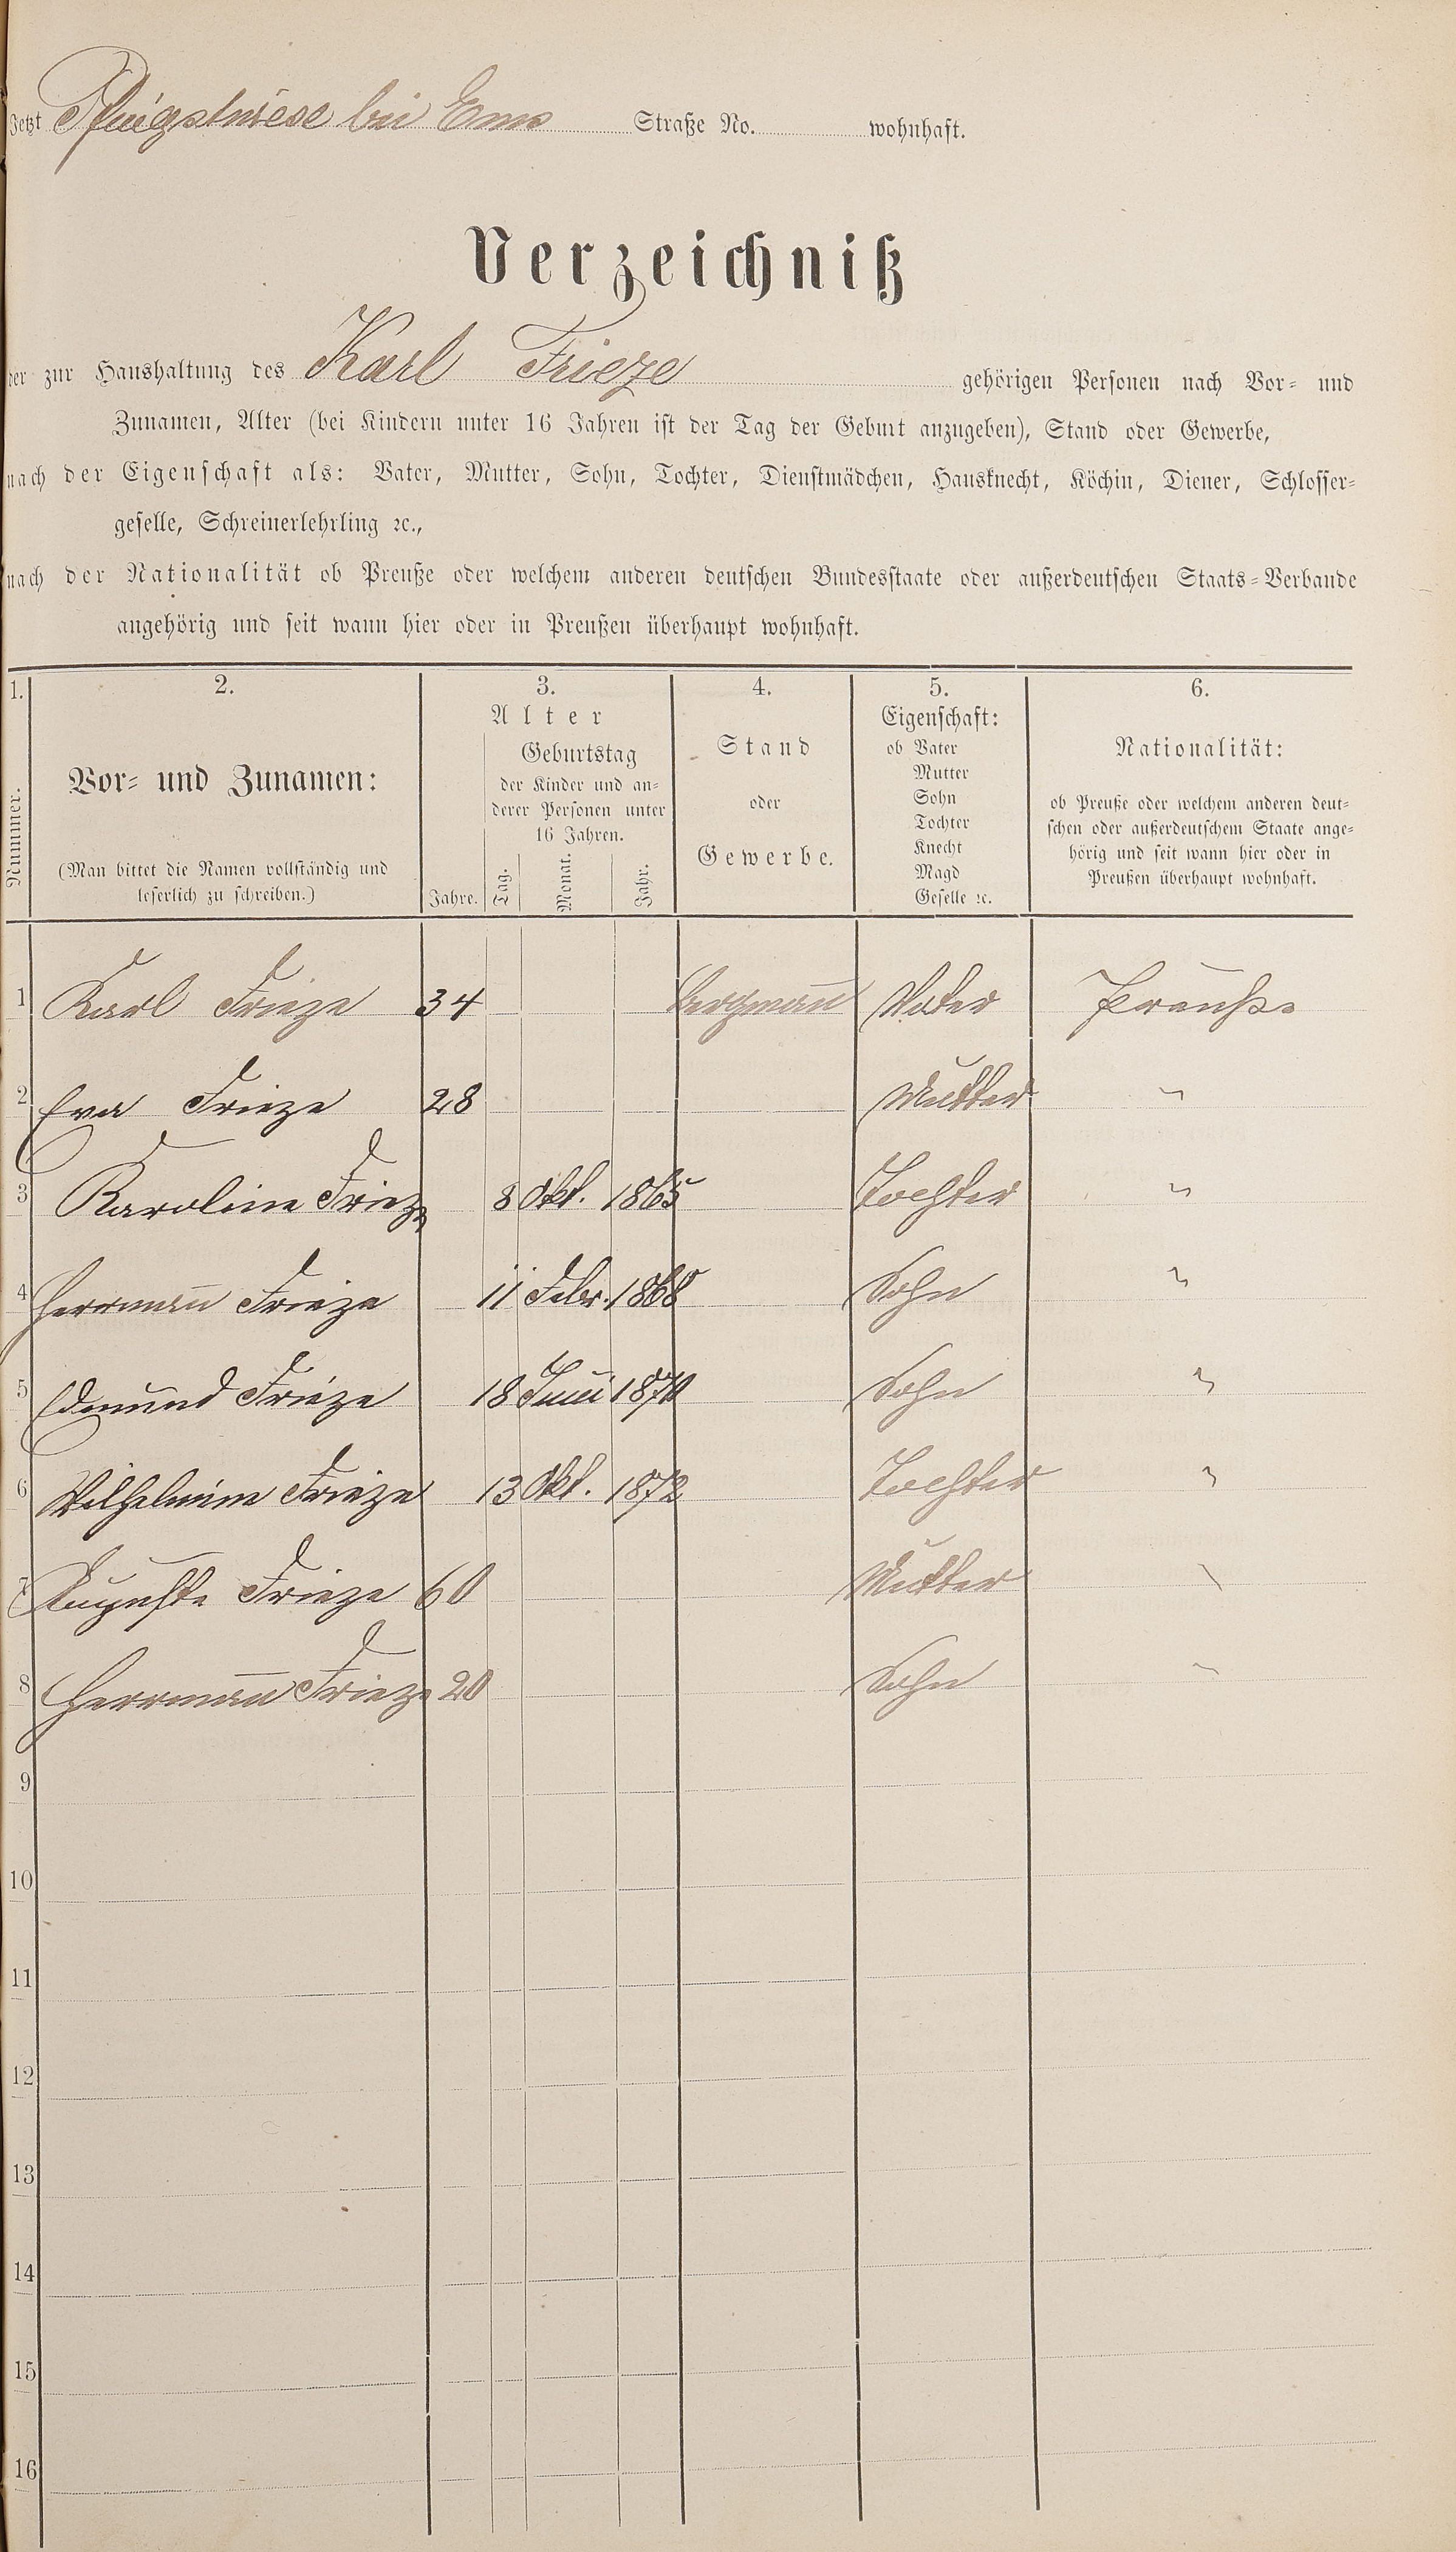 Jetzt Pfingstwiese bei Ems Straße No. wohnhaft.
Verzeichniß
der zur Haushaltung des Karl Frieze gehörigen Personen nach Vor- und
Zunamen, Alter (bei Kindern unter 16 Jahren ist der Tag der Geburt anzugeben), Stand oder Gewerbe,
nach der Eigenschaft als: Vater, Mutter, Sohn, Tochter, Dienstmädchen, Hausknecht, Köchin, Diener, Schlosser-
geselle, Schreinerlehrling ꝛc.,
nach der Nationalität ob Preuße oder welchem anderen deutschen Bundesstaate oder außerdeutschen Staats-Verbande
angehörig und seit wann hier oder in Preußen überhaupt wohnhaft.
1. 2. 3. 4. 5. 6.
Nummer.
Vor- und Zunamen:
(Man bittet die Namen vollständig und
leserlich zu schreiben.)
Alter
Jahre.
Geburtstag
der Kinder und an-
derer Personen unter
16 Jahren.
Tag. Monat. Jahr.
Stand
oder
Gewerbe.
Eigenschaft:
ob Vater
Mutter
Sohn
Tochter
Knecht
Magd
Geselle ꝛc.
Nationalität:
ob Preuße oder welchem anderen deut-
schen oder außerdeutschem Staate ange-
hörig und seit wann hier oder in
Preußen überhaupt wohnhaft.
1 Karl Frieze 34 Bergmann Vater Preuße
2 Eva Frieze 28 Mutter "
3 Karoline Frieze 8 Okt. 1865 Tochter "
4 Herrmann Frieze 11 Febr. 1868 Sohn "
5 Edmund Frieze 18 Juni 1870 Sohn "
6 Wilhelmine Frieze 13 Okt. 1872 Tochter "
7 Auguste Frieze 60 Mutter "
8 Herrmann Frieze 20 Sohn "
9
10
11
12
13
14
15
16